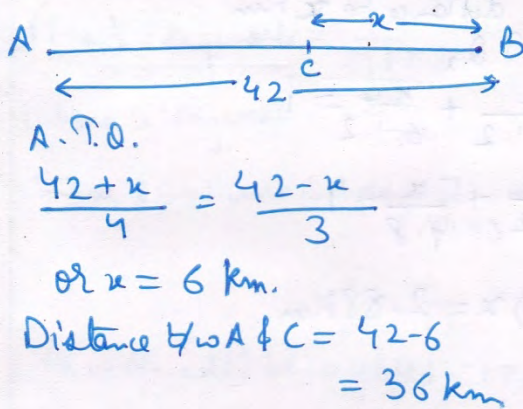 x
A B
C
42
A.T.Q.
42+x / 4 = 42-x / 3
or x = 6 km.
Distance b/w A & C = 42-6
= 36 km